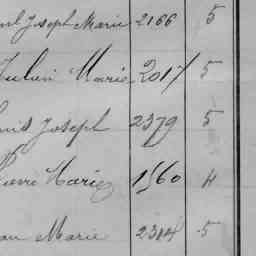 Joseph Marie 2166 5
Julien Marie 2017 5
Joseph 2379 5
Pierre Marie 1560 4
Marie 2314 5